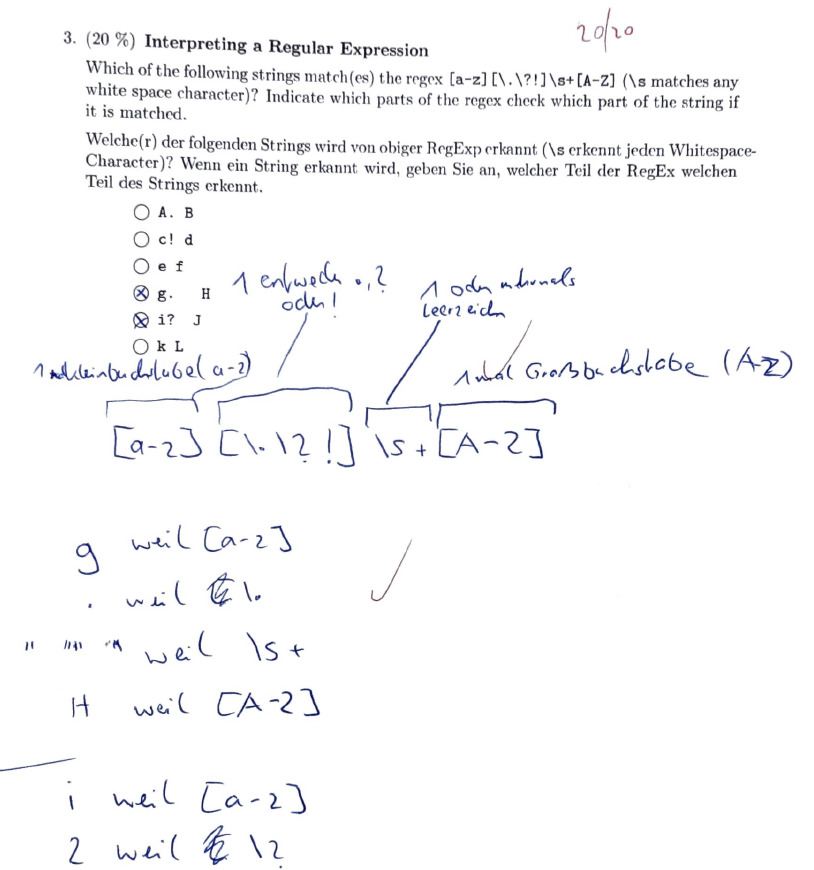 20/20
3. (20 %) Interpreting a Regular Expression
Which of the following strings match(es) the regex [a-z][\.\?!]\s+[A-Z] (\s matches any
white space character)? Indicate which parts of the regex check which part of the string if
it is matched.
Welche(r) der folgenden Strings wird von obiger RegExp erkannt (\s erkennt jeden Whitespace-
Character)? Wenn ein String erkannt wird, geben Sie an, welcher Teil der RegEx welchen
Teil des Strings erkennt.
A. B
c! d
e f
g. H
i? J
k L
1 entweder ., ?
oder !
1 oder mehrmals
Leerzeichen
1 mal Kleinbuchstabe (a-z)
1 mal Großbuchstabe (A-Z)
[a-z] [\. \? !] \s + [A-Z]
g weil [a-z]
. weil \.
" " " " weil \s +
H weil [A-Z]
i weil [a-z]
? weil \?